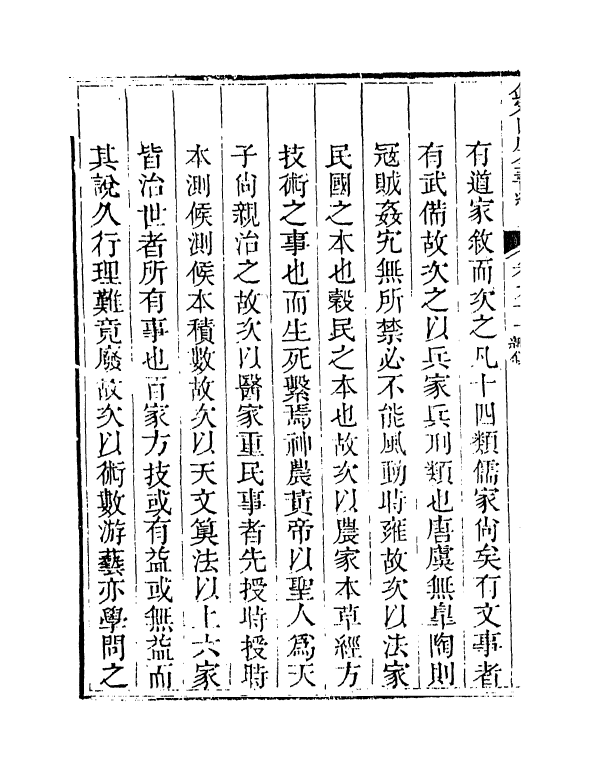 有道家敘而次之凡十四類儒家尙矣有文事者
有武備故次之以兵家兵刑類也唐虞無皐陶則
寇賊姦宄無所禁必不能風動時雍故次以法家
民國之本也穀民之本也故次以農家本草經方
技術之事也而生死繫焉神農黄帝以聖人爲天
子尙親治之故次以醫家重民事者先授時授時
本測候測候本積數故次以天文算法以上六家
皆治世者所有事也百家方技或有益或無益而
其說久行理難竟廢故次以術數游藝亦學問之